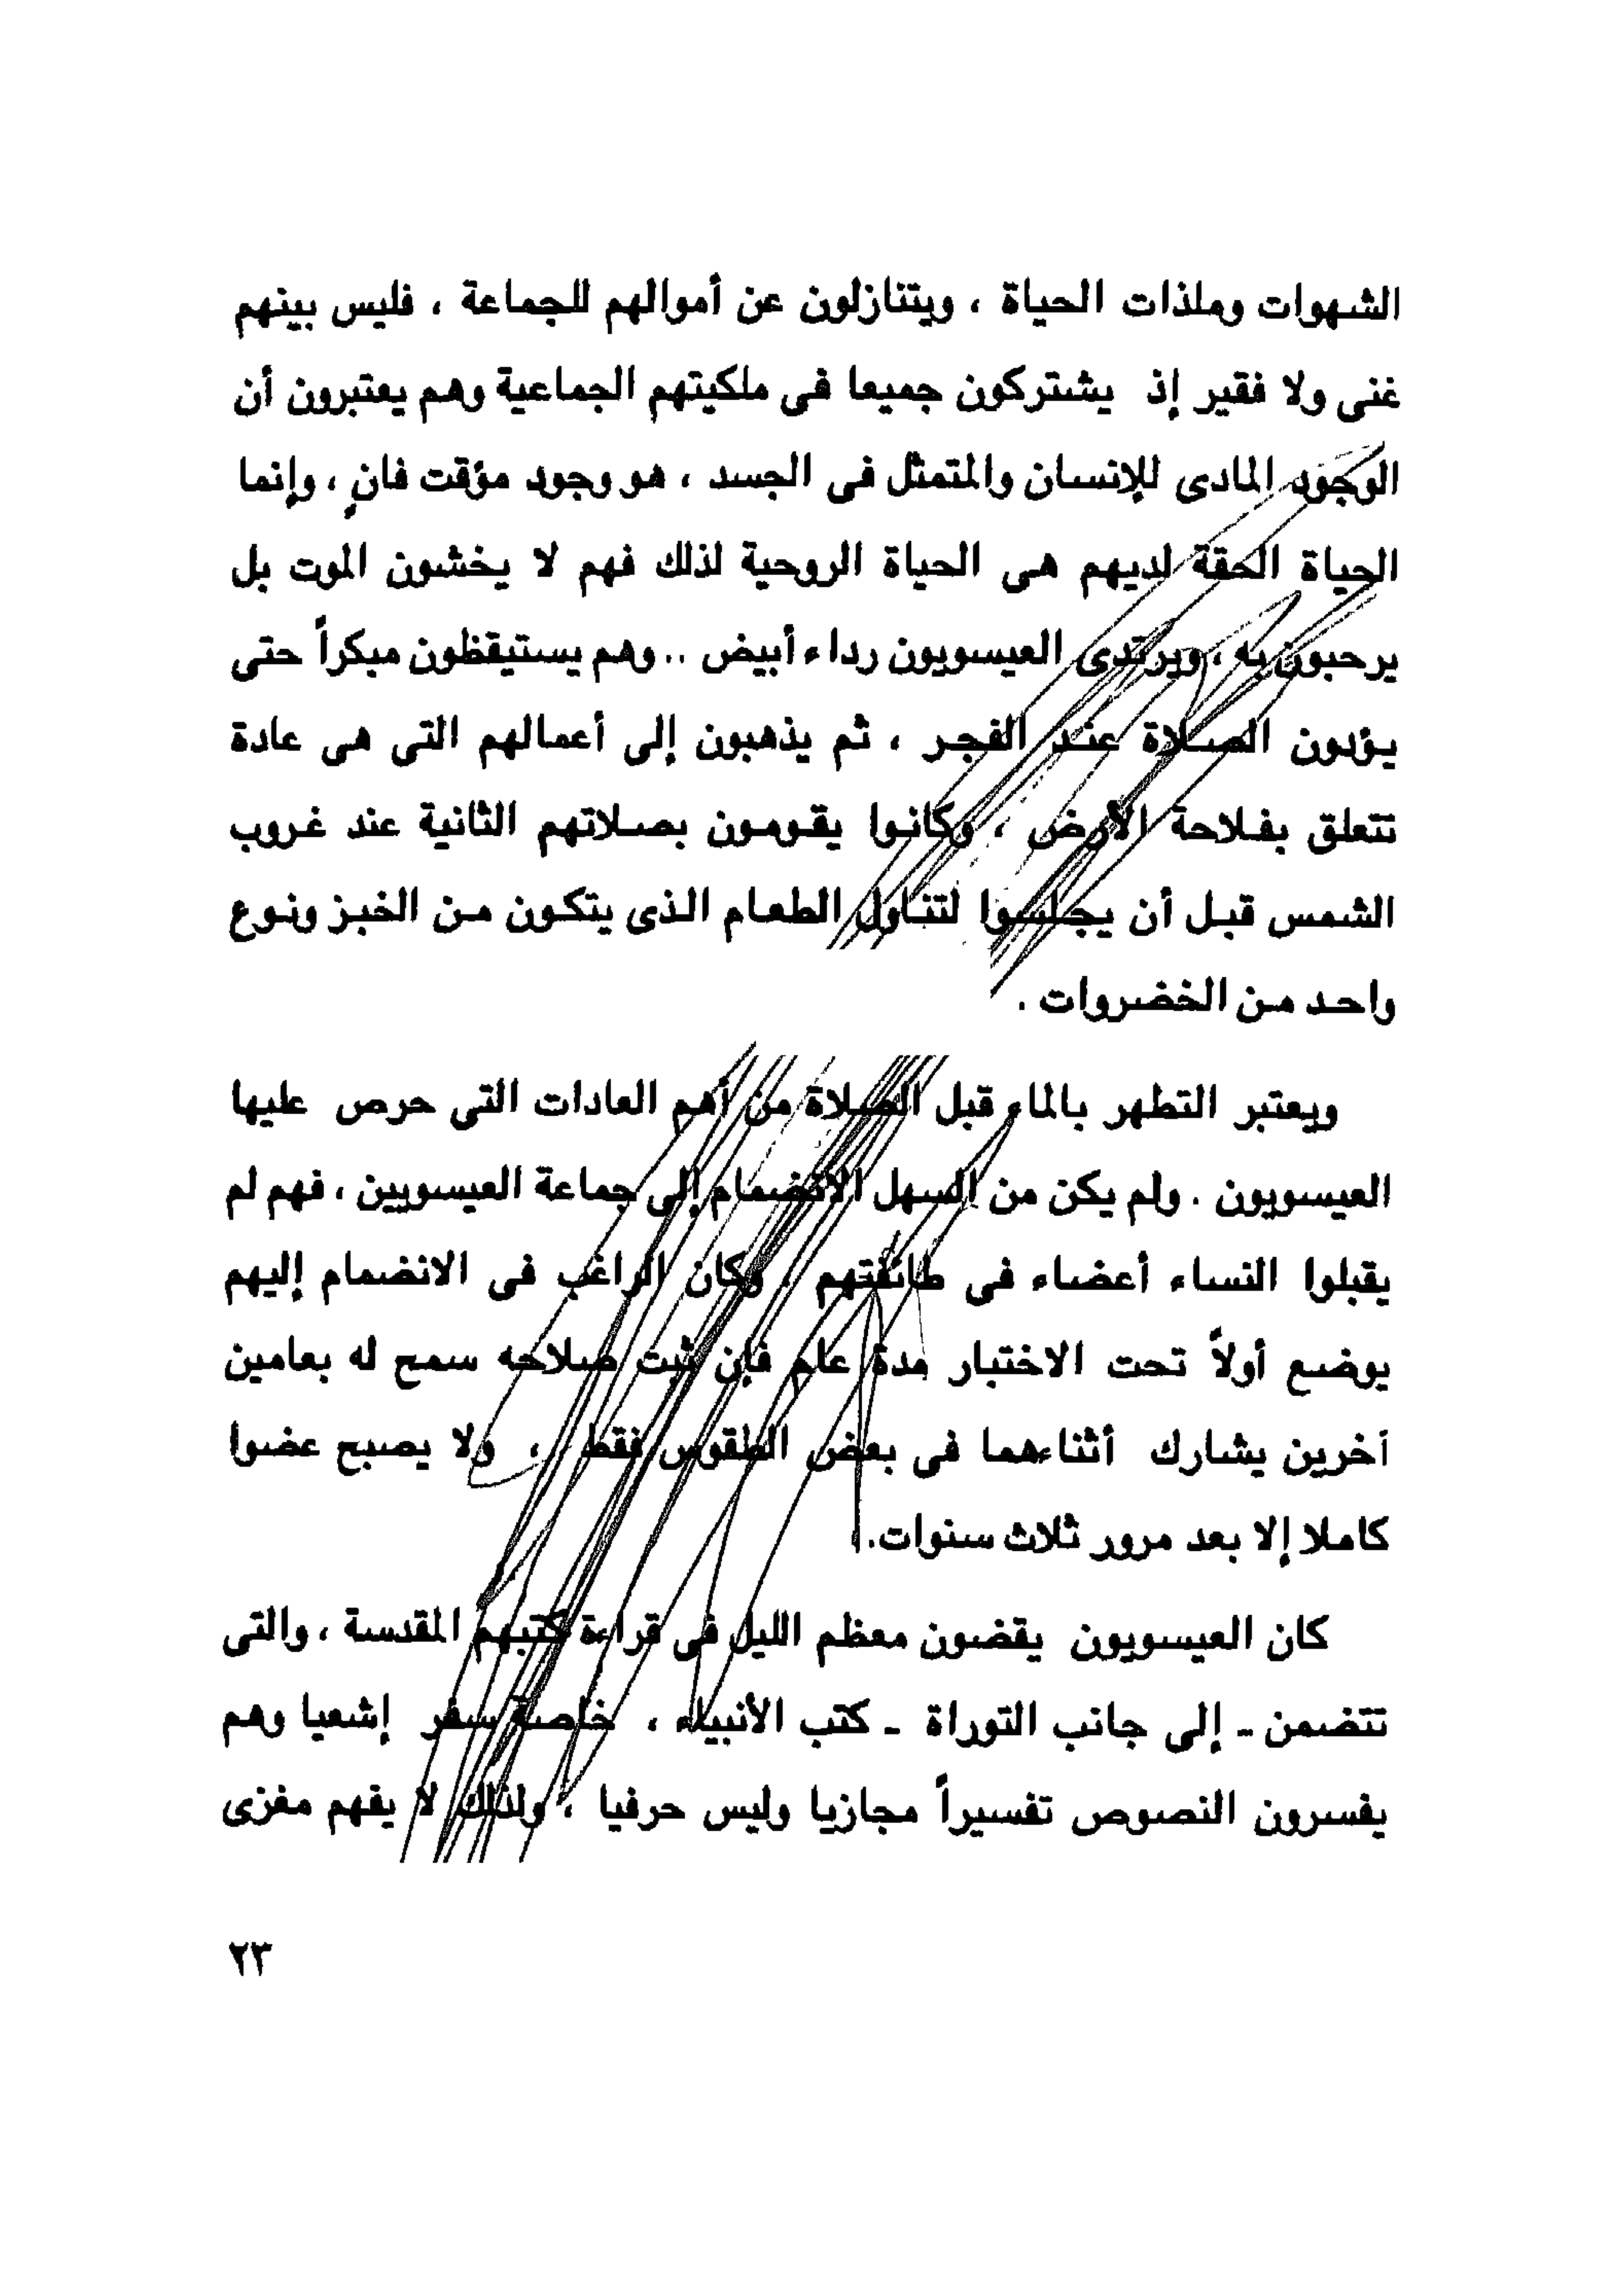 الشهوات وملذات الحياة ، ويتنازلون عن أموالهم للجماعة ، فليس بينهم
غنى ولا فقير إذ يشتركون جميعا فى ملكيتهم الجماعية وهم يعتبرون أن
الوجود المادى للإنسان والمتمثل فى الجسد ، هو وجود مؤقت فانٍ ، وإنما
الحياة الحقة لديهم هى الحياة الروحية لذلك فهم لا يخشون الموت بل
يرحبون به ، ويرتدى العيسويون رداء أبيض .. وهم يستيقظون مبكراً حتى
يؤدون الصلاة عند الفجر ، ثم يذهبون إلى أعمالهم التى هى عادة
تتعلق بفلاحة الأرض ، وكانوا يقومون بصلاتهم الثانية عند غروب
الشمس قبل أن يجلسوا لتناول الطعام الذى يتكون من الخبز ونوع
واحد من الخضروات .
ويعتبر التطهر بالماء قبل الصلاة من أهم العادات التى حرص عليها
العيسويون . ولم يكن من السهل الانضمام إلى جماعة العيسويين ، فهم لم
يقبلوا النساء أعضاء فى طائفتهم ، وكان الراغب فى الانضمام إليهم
يوضع أولاً تحت الاختبار مدة عام فإن ثبت صلاحه سمح له بعامين
آخرين يشارك أثناءهما فى بعض الطقوس فقط ، ولا يصبح عضوا
كاملا إلا بعد مرور ثلاث سنوات.
كان العيسويون يقضون معظم الليل فى قراءة كتبهم المقدسة ، والتى
تتضمن ـ إلى جانب التوراة ـ كتب الأنبياء ، خاصة سفر إشعيا وهم
يفسرون النصوص تفسيراً مجازيا وليس حرفيا ، ولذلك لا يفهم مغزى
٢٣